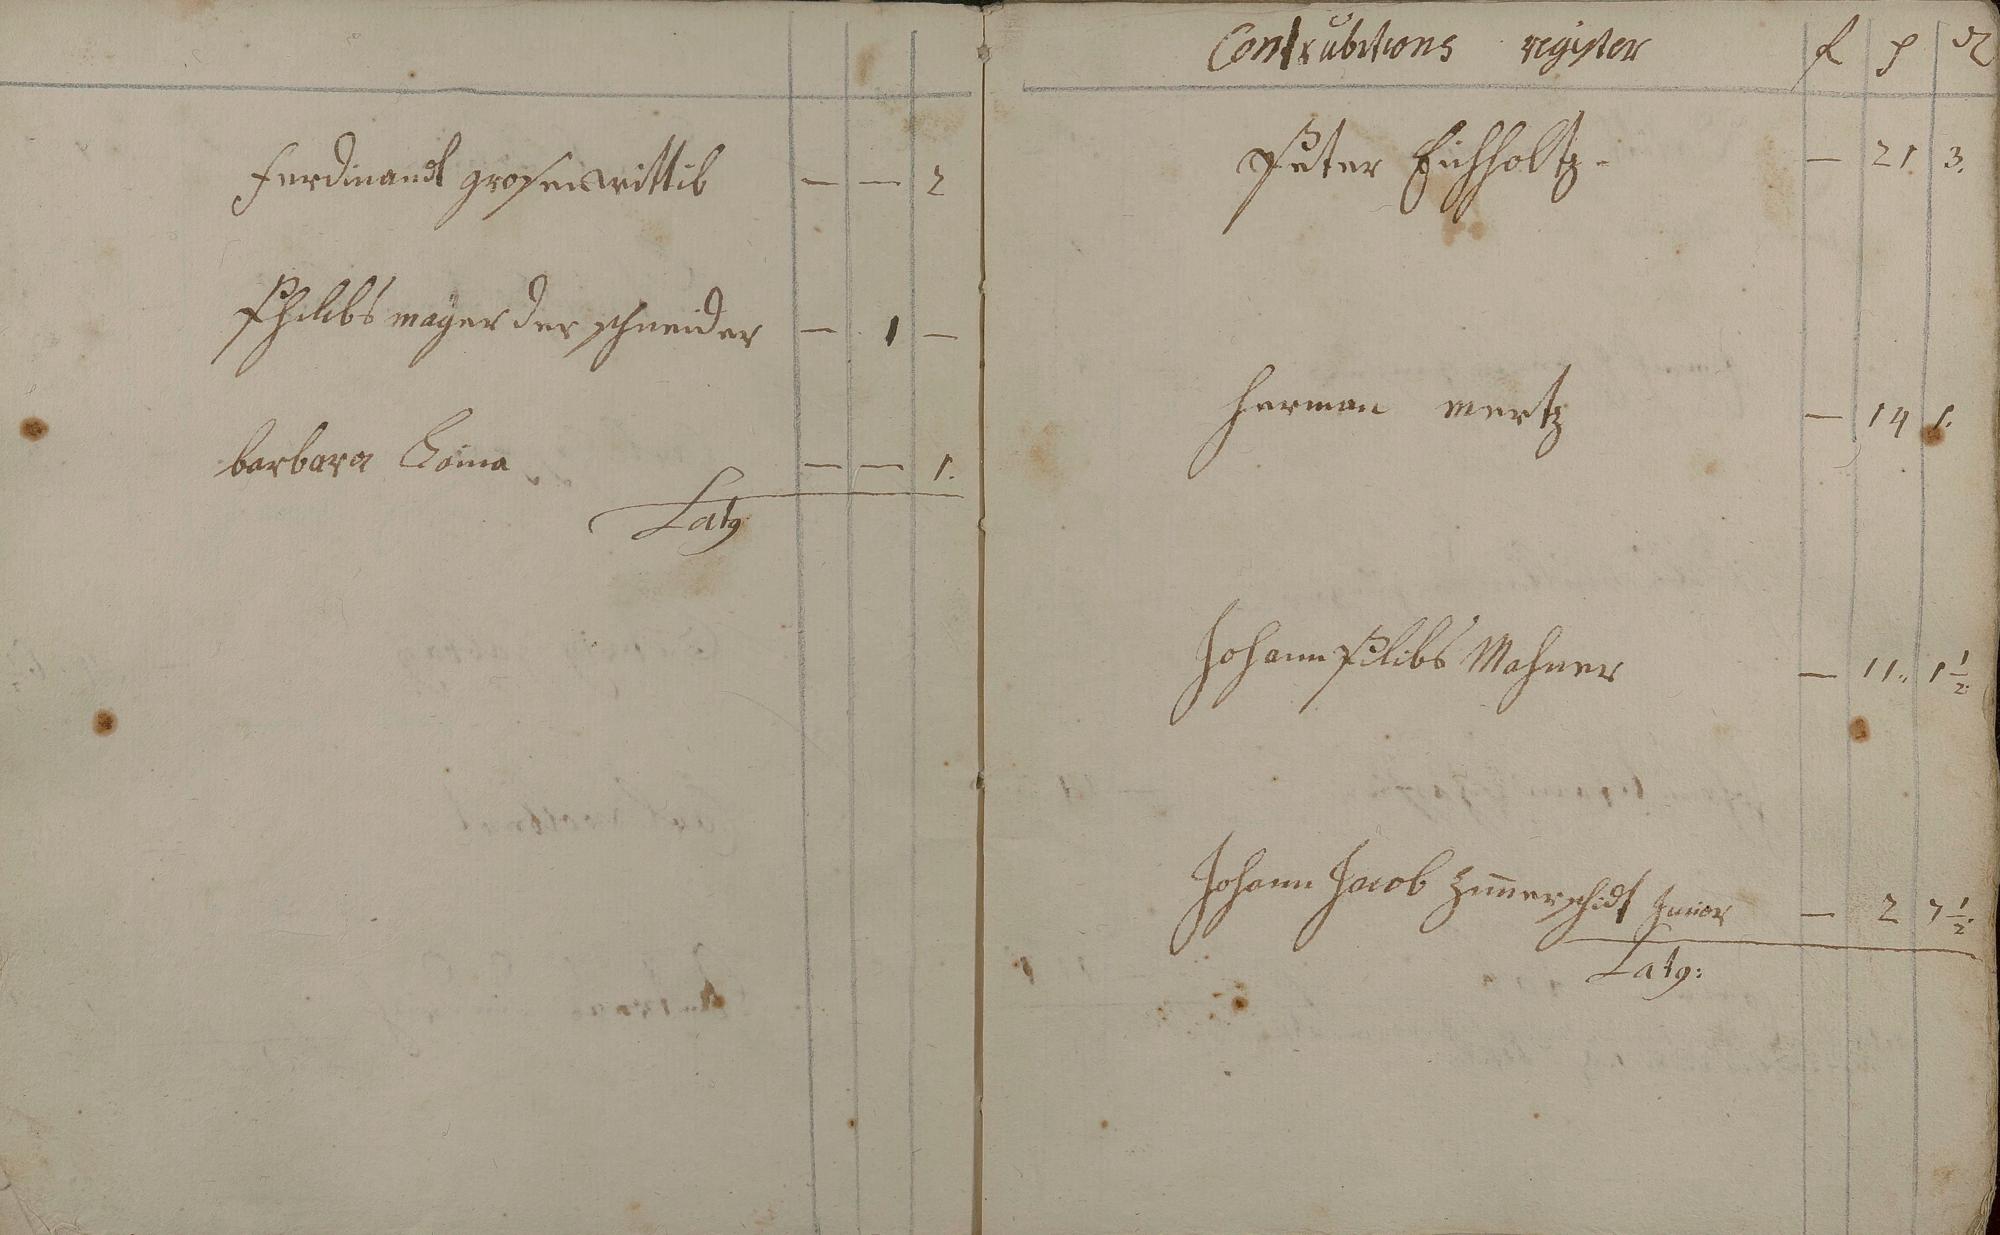 Ferdinandt grosen wittib — — 2
Philibs mayer der schneider — 1 —
barbara — — 1.
Latg
Contrubitions register f
Peter Eichholtz — 21 3.
herman mertz — 14 1.
Johann Philibs Mahner — 11.. 1 1/2
Johann Jacob Zim̄erschidt Junior — 2 7 1/2
Latg: